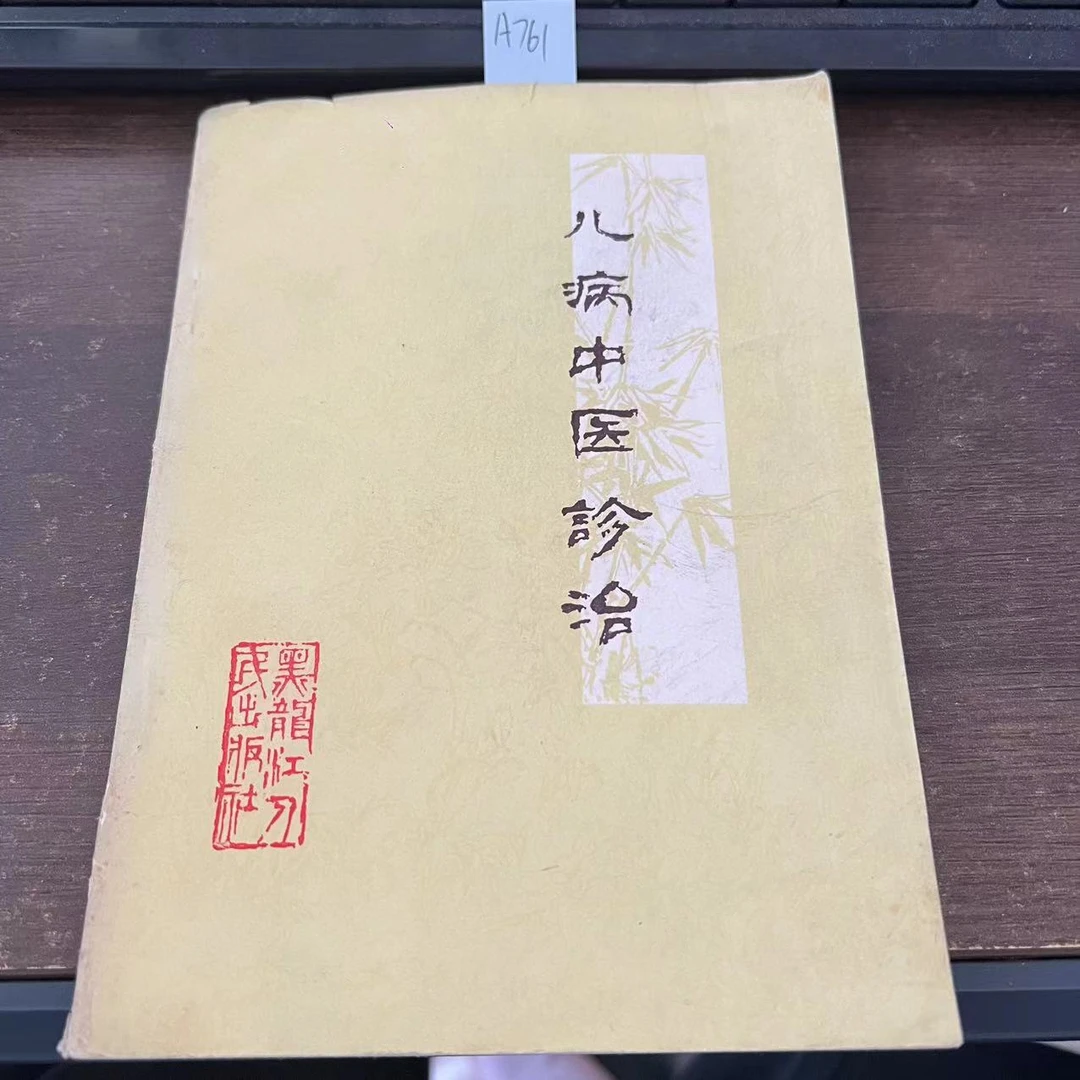 A761
儿病中医診治
黑龍江人
民出版社